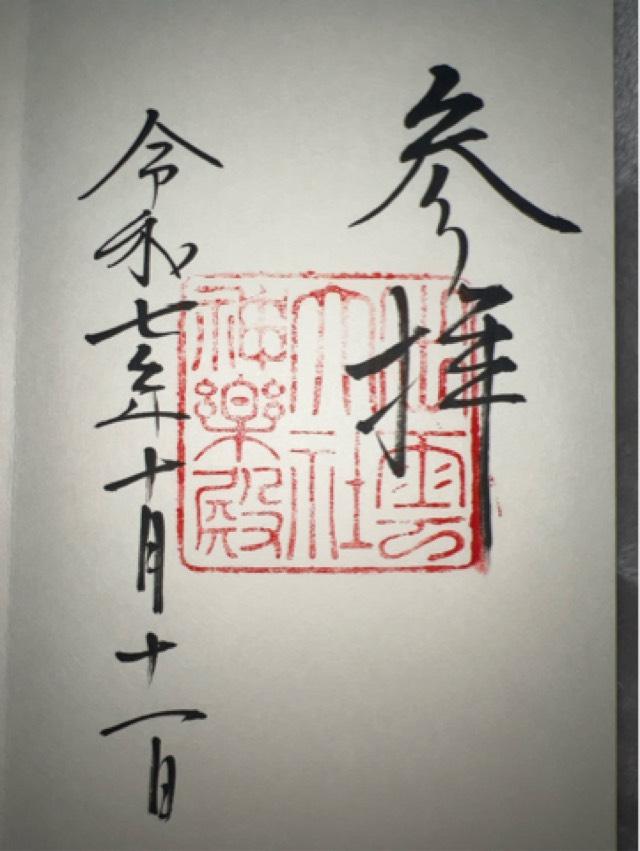 参拝
出雲
大社
神楽殿
令和七年十月十一日